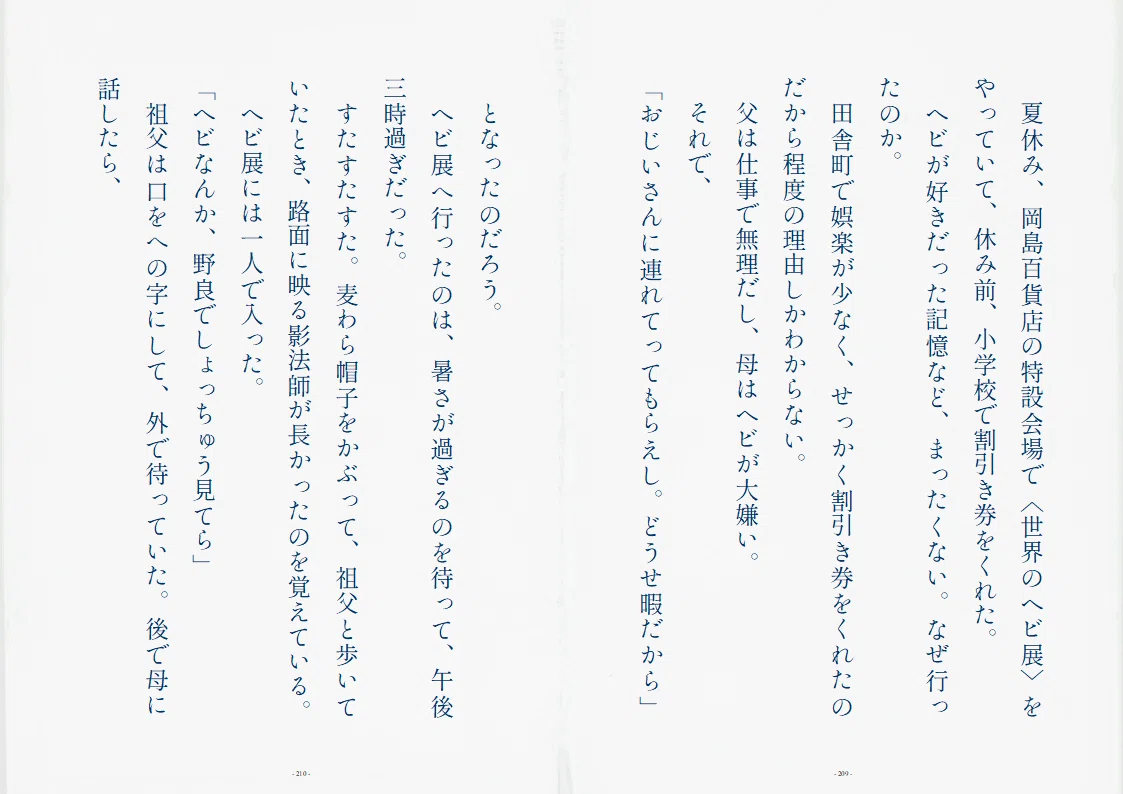 夏休み、岡島百貨店の特設会場で〈世界のヘビ展〉を
やっていて、休み前、小学校で割引き券をくれた。
ヘビが好きだった記憶など、まったくない。なぜ行っ
たのか。
田舎町で娯楽が少なく、せっかく割引き券をくれたの
だから程度の理由しかわからない。
父は仕事で無理だし、母はヘビが大嫌い。
それで、
「おじいさんに連れてってもらえし。どうせ暇だから」
- 209 -
となったのだろう。
ヘビ展へ行ったのは、暑さが過ぎるのを待って、午後
三時過ぎだった。
すたすたすた。麦わら帽子をかぶって、祖父と歩いて
いたとき、路面に映る影法師が長かったのを覚えている。
ヘビ展には一人で入った。
「ヘビなんか、野良でしょっちゅう見てら」
祖父は口をへの字にして、外で待っていた。後で母に
話したら、
- 210 -